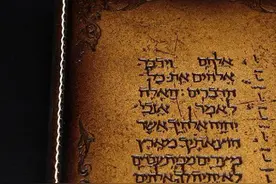 אלהים וידבר
אלהים את כל
הדברים האלה
לאמר אנכי
יהוה אלהיך אשר
הוצאתיך מארץ
מצרים מבית עבדים
לא יהיה לך אלהים